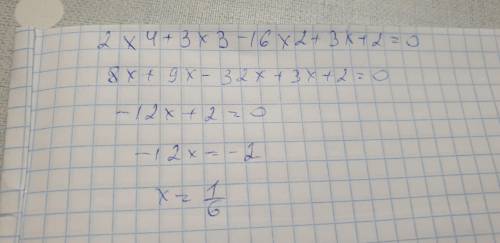 2x4+3x3-16x2+3x+2=0
8x+9x-32x+3x+2=0
-12x+2=0
-12x=-2
x=1/6